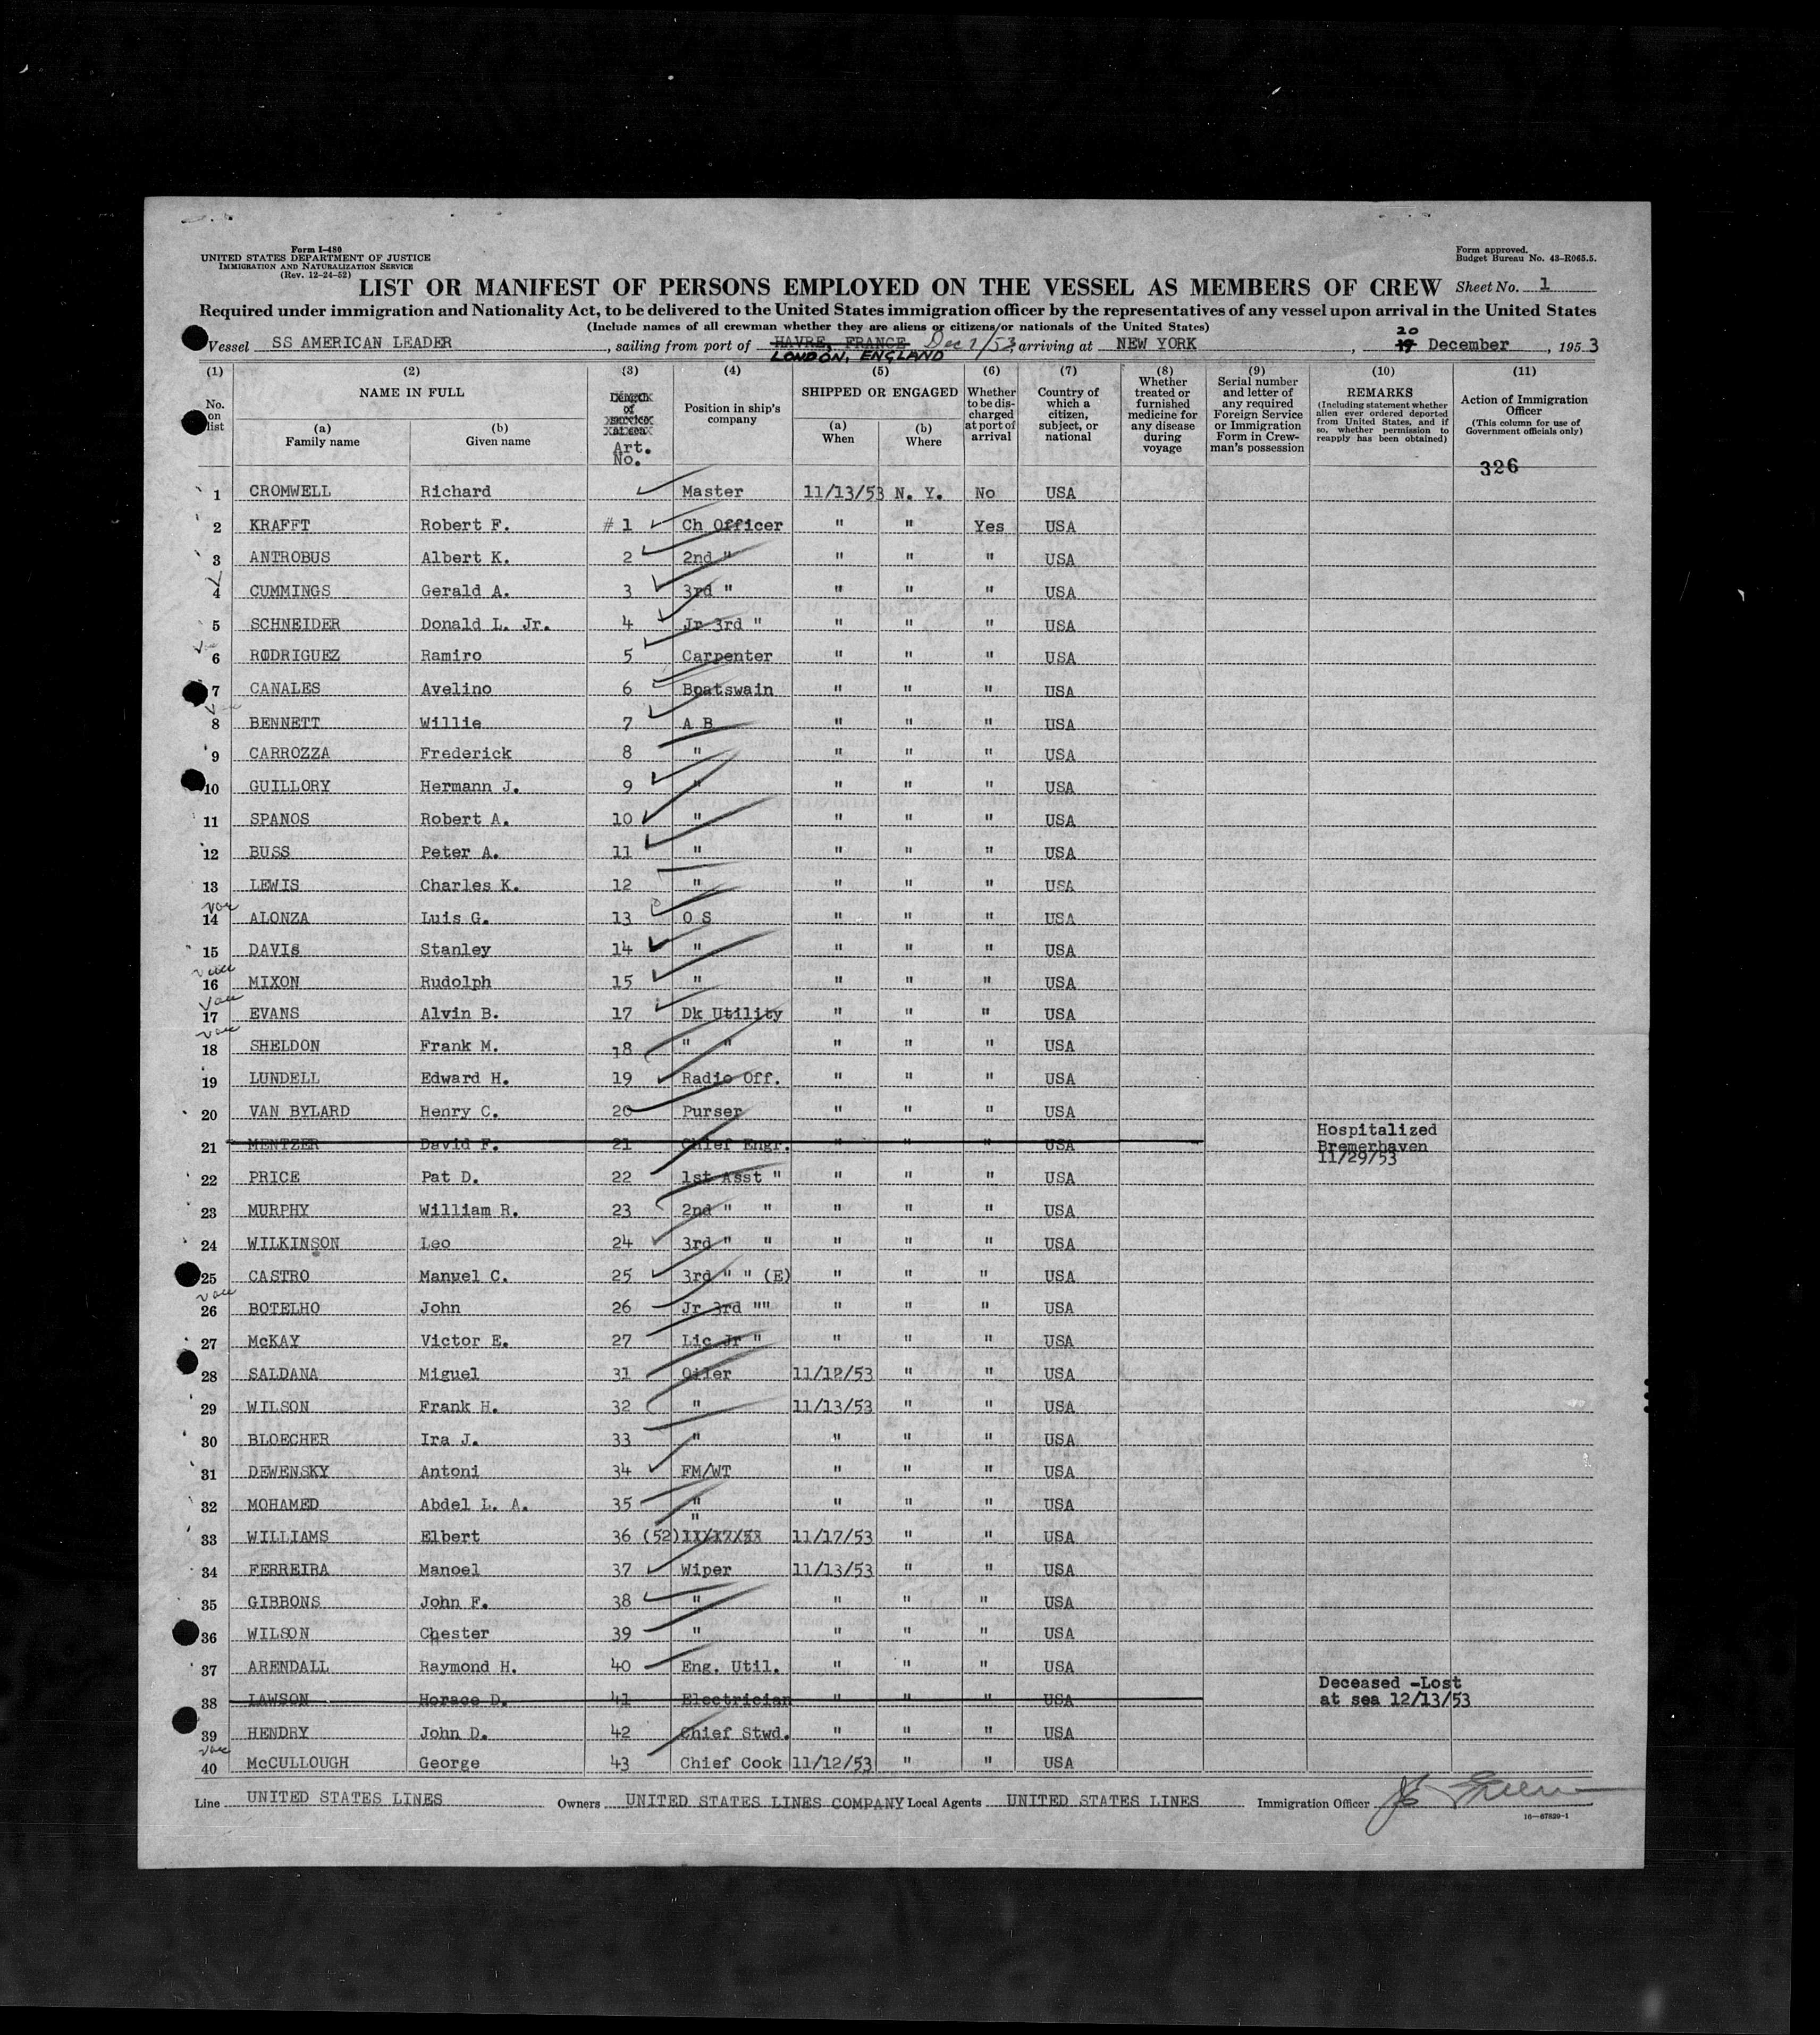 Form I-480
UNITED STATES DEPARTMENT OF JUSTICE
IMMIGRATION AND NATURALIZATION SERVICE
(Rev. 12-24-52)
Form approved.
Budget Bureau No. 43-R065.5.
LIST OR MANIFEST OF PERSONS EMPLOYED ON THE VESSEL AS MEMBERS OF CREW Sheet No. 1
Required under immigration and Nationality Act, to be delivered to the United States immigration officer by the representatives of any vessel upon arrival in the United States
(Include names of all crewman whether they are aliens or citizens/or nationals of the United States)
20
Vessel SS AMERICAN LEADER, sailing from port of HAVRE, FRANCE Dec 7/53, arriving at NEW YORK, 19 December, 1953
LONDON, ENGLAND
(1) (2) (3) (4) (5) (6) (7) (8) (9) (10) (11)
No. on list
NAME IN FULL
(a) Family name
(b) Given name
Length of service at sea
Art. No.
Position in ship's company
SHIPPED OR ENGAGED
(a) When
(b) Where
Whether to be discharged at port of arrival
Country of which a citizen, subject, or national
Whether treated or furnished medicine for any disease during voyage
Serial number and letter of any required Foreign Service or Immigration Form in Crewman's possession
REMARKS
(Including statement whether alien ever ordered deported from United States, and if so, whether permission to reapply has been obtained)
Action of Immigration Officer
(This column for use of Government officials only)
326
1 CROMWELL Richard Master 11/13/53 N. Y. No USA
2 KRAFFT Robert F. # 1 Ch Officer " " Yes USA
3 ANTROBUS Albert K. 2 2nd " " " " USA
4 CUMMINGS Gerald A. 3 3rd " " " " USA
5 SCHNEIDER Donald L. Jr. 4 Jr 3rd " " " " USA
6 RODRIGUEZ Ramiro 5 Carpenter " " " USA
7 CANALES Avelino 6 Boatswain " " " USA
8 BENNETT Willie 7 A B " " " USA
9 CARROZZA Frederick 8 " " " " USA
10 GUILLORY Hermann J. 9 " " " " USA
11 SPANOS Robert A. 10 " " " " USA
12 BUSS Peter A. 11 " " " " USA
13 LEWIS Charles K. 12 " " " " USA
14 ALONZA Luis G. 13 O S " " " USA
15 DAVIS Stanley 14 " " " " USA
16 MIXON Rudolph 15 " " " " USA
17 EVANS Alvin B. 17 Dk Utility " " " USA
18 SHELDON Frank M. 18 " " " " " USA
19 LUNDELL Edward H. 19 Radio Off. " " " USA
20 VAN BYLARD Henry C. 20 Purser " " " USA
21 MENTZER David F. 21 Chief Engr. " " " USA Hospitalized Bremerhaven 11/29/53
22 PRICE Pat D. 22 1st Asst " " " " USA
23 MURPHY William R. 23 2nd " " " " " USA
24 WILKINSON Leo 24 3rd " " " " " USA
25 CASTRO Manuel C. 25 3rd " " (E) " " " USA
26 BOTELHO John 26 Jr 3rd "" " " " USA
27 McKAY Victor E. 27 Lic Jr " " " " USA
28 SALDANA Miguel 31 Oiler 11/12/53 " " USA
29 WILSON Frank H. 32 " 11/13/53 " " USA
30 BLOECHER Ira J. 33 " " " " USA
31 DEWENSKY Antoni 34 FM/WT " " " USA
32 MOHAMED Abdel L. A. 35 " " " " USA
33 WILLIAMS Elbert 36 (52) " 11/17/53 11/17/53 " " USA
34 FERREIRA Manoel 37 Wiper 11/13/53 " " USA
35 GIBBONS John F. 38 " " " " USA
36 WILSON Chester 39 " " " " USA
37 ARENDALL Raymond H. 40 Eng. Util. " " " USA
38 LAWSON Horace D. 41 Electrician " " " USA Deceased -Lost at sea 12/13/53
39 HENDRY John D. 42 Chief Stwd. " " " USA
40 McCULLOUGH George 43 Chief Cook 11/12/53 " " USA
Line UNITED STATES LINES Owners UNITED STATES LINES COMPANY Local Agents UNITED STATES LINES Immigration Officer
16—67829-1